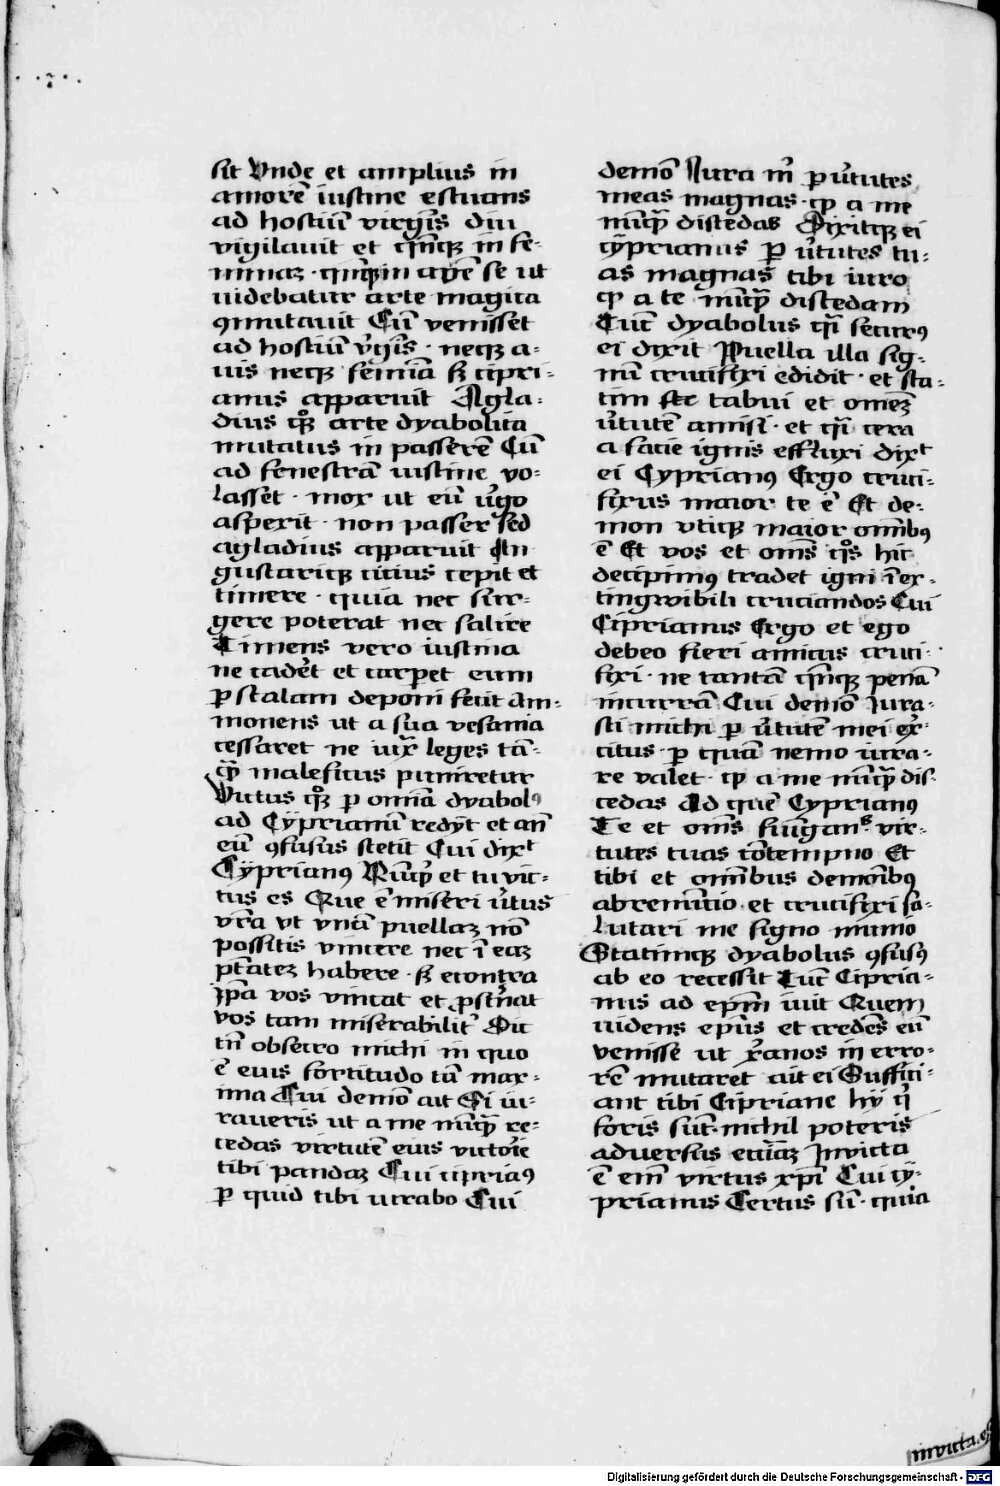 sit Vnde et amplius in
amorē iustine estuans
ad hostiū virgīs diu
vigilauit et qn̄qꝫ in fe-
minaꝫ · qn̄qꝫ in auē se ut
uidebatur arte magica
ꝯmutauit Cū venisset
ad hostiū v̓gīs · necqꝫ a-
uis necqꝫ femīa sꝫ cipri-
anus apparuit Agla-
dius qꝫ̊ arte dyabolica
mutatus in passerē Cū
ad fenestrā iustine vo-
lasset · mox ut eū v̓go
aspexit · non passer sed
agladius apparuit An
gustariqꝫ cicius cepit et
timere · quia nec sur-
gere poterat nec salire
Timens vero iustina
ne cad̓et et carꝑet eum
ꝑ scalam deponi fecit Am-
monens ut a sua vesania
cessaret ne iux̄ leges tā-
qͣꝫ maleficus puniretur
Victus qꝫ̊ ꝑ omīa dyabolꝰ
ad Cyprianū redyt et an̄
eū ꝯfusus stetit Cui dixᵗ
Cyprianꝰ Nūqͥꝫ et tu vic-
tus es Que ē miseri v̓tus
vr̄a vt vnā puellaꝫ nō
possitis vincere nec ī eaꝫ
ptāteꝫ habere · sꝫ econtra
ip̄a vos vincat et ꝓst̓nat
vos tam miserabilit̓ Dic
tn̄ obsecro michi in quo
ē eius fortitudo tā max-
ima Cui demō ait Si iu-
raueris ut a me nūqͣꝫ re-
cedas virtutē eius victorie
tibi pandaꝫ Cui ciprianꝰ
ꝑ quid tibi iurabo Cui
demō Iura m̄ ꝑ v̓tutes
meas magnas · ꝙ a me
nūqͣꝫ discedas Dixitqꝫ ei
cyprianus ꝑ v̓tutes tu-
as magnas tibi iuro
ꝙ a te nūqͣꝫ discedam
Tūc dyabolus qͣi securꝰ
ei dixit Puella illa sig-
nū crucifixi edidit · et sta-
tim tabui et omneꝫ
v̓tutē amisi · et qͣi cera
a facie ignis effluxi dixᵗ
ei Cyprianꝰ Ergo cruci-
fixus maior te ē Et de-
mon vtiqꝫ maior omībꝰ
ē Et vos et oms̄ qͦs hic
decipimꝰ tradet igni īex-
tingwibili cruciandos Cui
Ciprianus Ergo et ego
debeo fieri amicus cruci-
fixi · ne tantā qn̄qꝫ penā
incurrā Cui demō Iura-
sti michi ꝑ v̓tutē mei ex̓-
citus · ꝑ quā nemo iura-
re valet · ꝙ a me nūqͣꝫ dis-
cedas Ad quē Cyprianꝰ
Te et oms̄ fumgan̄ˢ vir-
tutes tuas cōtempno Et
tibi et omībus demonībꝰ
abrenūtio et crucifixi sa-
lutari me signo munio
Statimqꝫ dyabolus ꝯfusꝰ
ab eo recessit Tūc Cipria-
nus ad ep̄m iuit Quem
uidens ep̄us et credēs eū
venisse ut xp̄ianos in erro-
rē mutaret ait ei Suffici-
ant tibi Cipriane hij qͥ
foris sūt · nichil poteris
aduersus ecciāꝫ Invicta
ē em̄ virtus xp̄i Cui cy-
prianus Certus sū · quia
invicta · ē
Digitalisierung gefördert durch die Deutsche Forschungsgemeinschaft - DFG